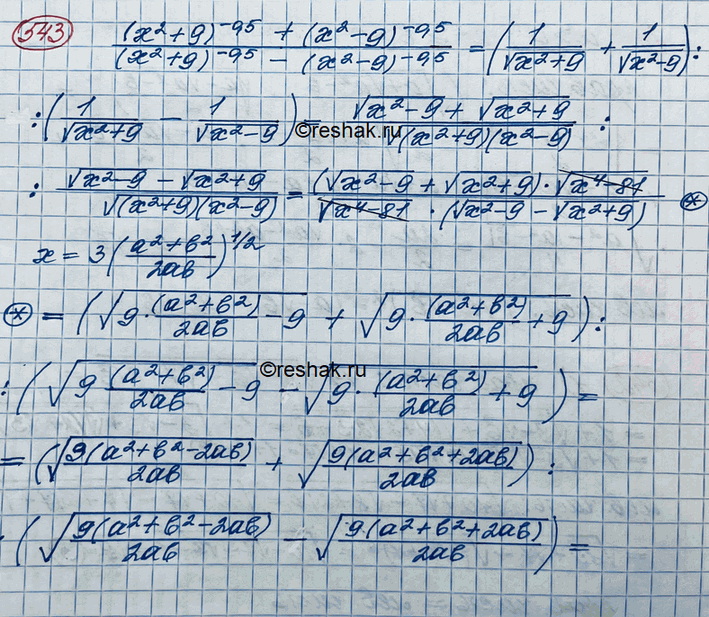 543 ((x²+9)^-0,5 + (x²-9)^-0,5)/((x²+9)^-0,5 - (x²-9)^-0,5) = (1/√(x²+9) + 1/√(x²-9)) :
: (1/√(x²+9) - 1/√(x²-9)) = (√(x²-9) + √(x²+9))/√((x²+9)(x²-9)) :
©reshak.ru
: (√(x²-9) - √(x²+9))/√((x²+9)(x²-9)) = ((√(x²-9) + √(x²+9))·√(x⁴-81))/(√(x⁴-81)·(√(x²-9) - √(x²+9))) ⊛
x = 3((a²+b²)/2ab)^1/2
⊛ = (√(9·(a²+b²)/2ab - 9) + √(9·(a²+b²)/2ab + 9)) :
©reshak.ru
: (√(9 (a²+b²)/2ab - 9) - √(9·(a²+b²)/2ab + 9)) =
= (√(9(a²+b²-2ab)/2ab) + √(9(a²+b²+2ab)/2ab)) :
: (√(9(a²+b²-2ab)/2ab) - √(9(a²+b²+2ab)/2ab)) =